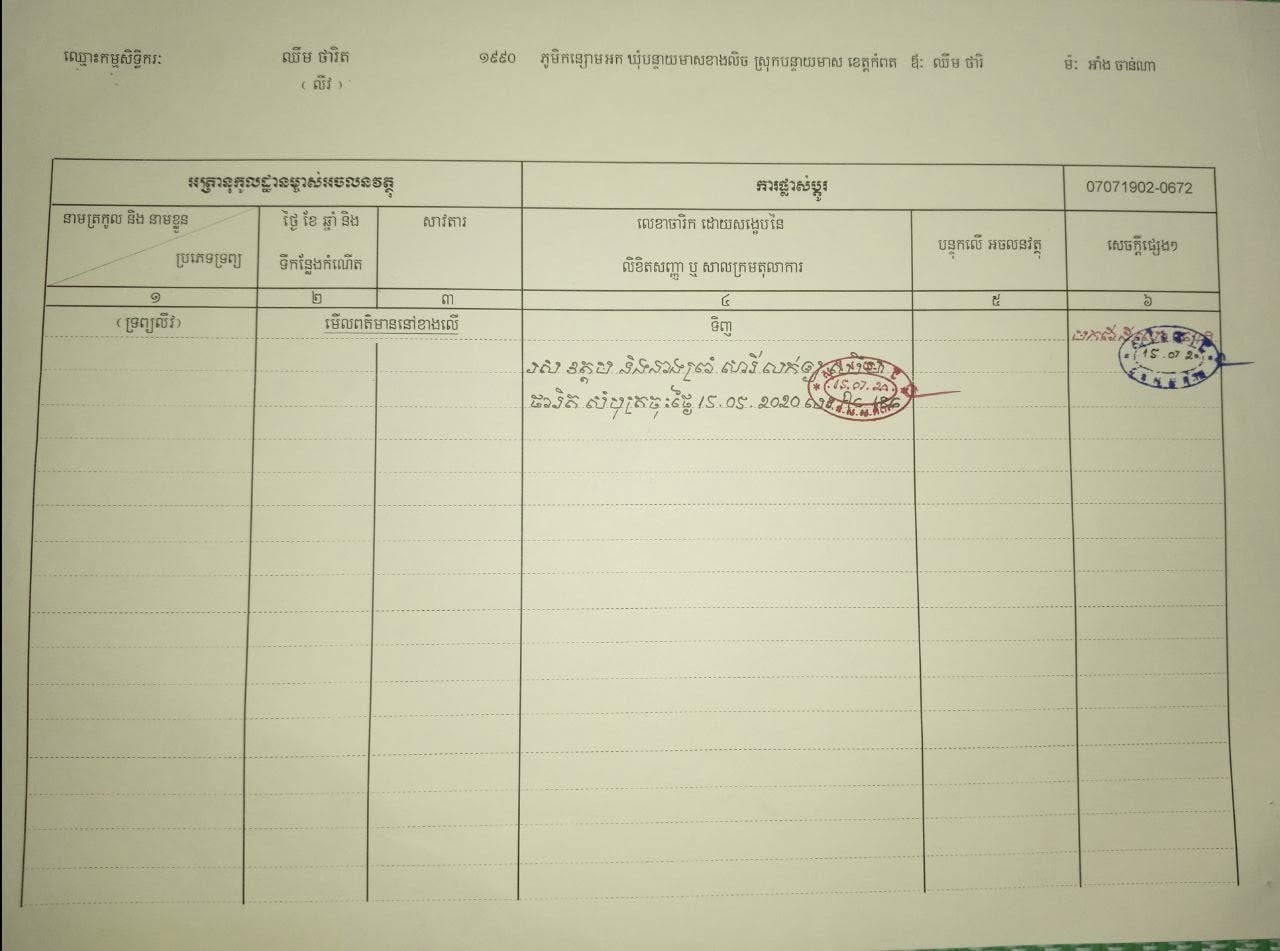 ឈ្មោះកម្មសិទ្ធិករៈ ឈឹម ថារិត ១៩៩០ ភូមិកន្សោមអក ឃុំបន្ទាយមាសខាងលិច ស្រុកបន្ទាយមាស ខេត្តកំពត ឪៈ ឈឹម ថារិ ម៉ៈ អាំង ចាន់ណា
( លីវ )
អត្រានុកូលដ្ឋានម្ចាស់អចលនវត្ថុ ការផ្លាស់ប្តូរ 07071902-0672
នាមត្រកូល និង នាមខ្លួន ថ្ងៃ ខែ ឆ្នាំ និង សាវតារ លេខាចារិក ដោយសង្ខេបនៃ បន្ទុកលើ អចលនវត្ថុ សេចក្តីផ្សេងៗ
ប្រភេទទ្រព្យ ទីកន្លែងកំណើត លិខិតសញ្ញា ឬ សាលក្រមតុលាការ
១ ២ ៣ ៤ ៥ ៦
(ទ្រព្យលីវ) មើលពត៌មាននៅខាងលើ ទិញ
និងនាង សារី លក់ឲ្យ
15.07.20
ថារិត សំបុត្រចុះថ្ងៃ 15.05.2020
15.07.20